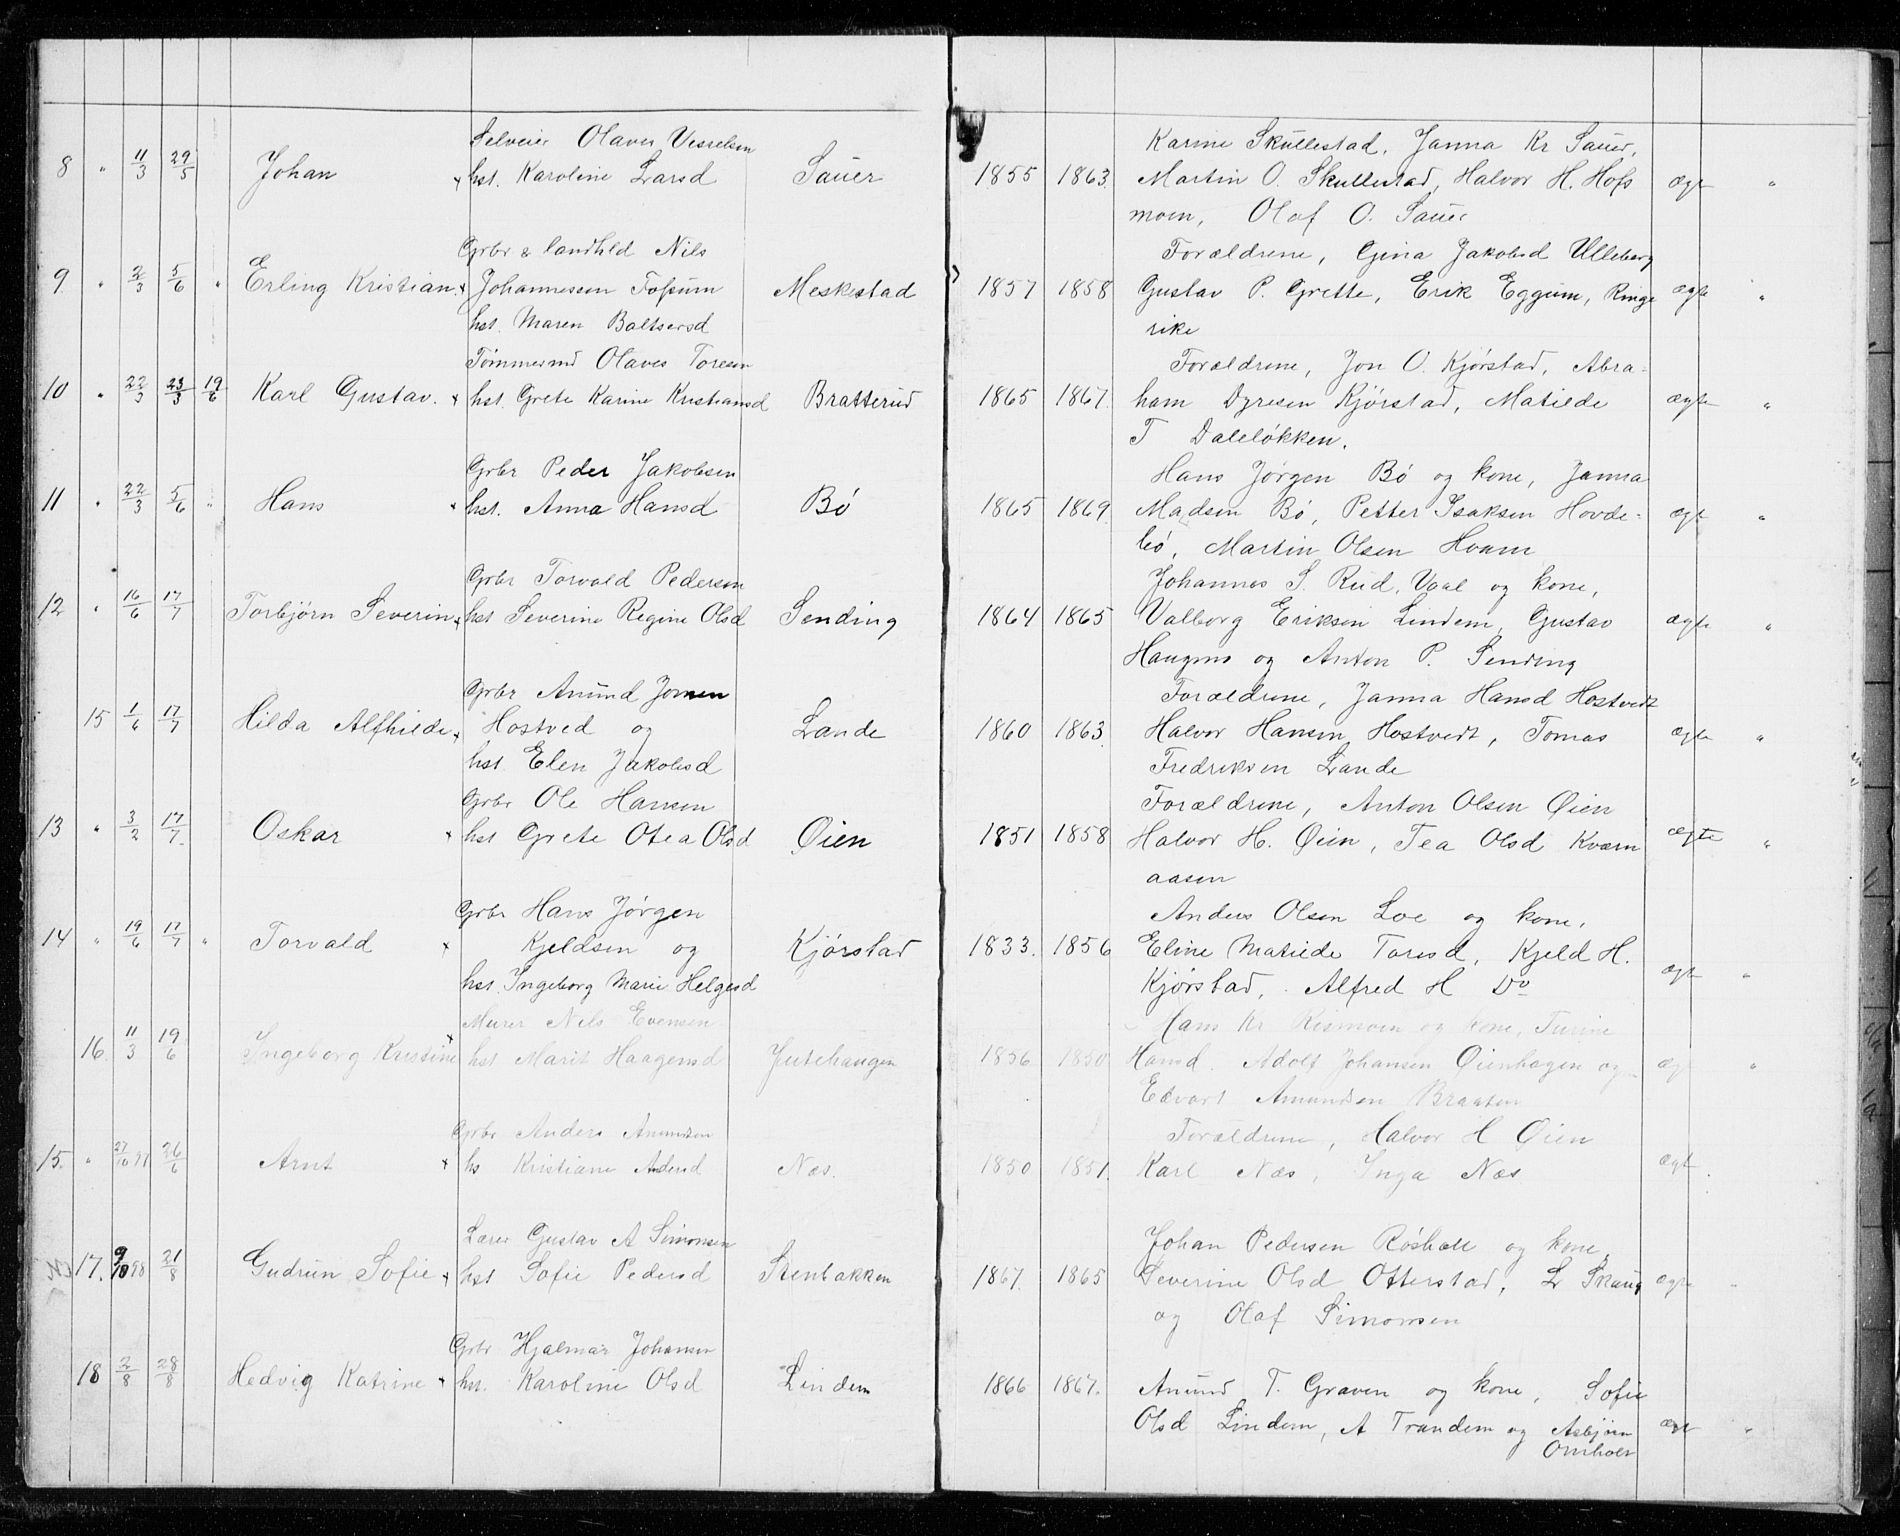 Selveier Olaves Vesselsen
8 " 11/3 29/5 Johan hst. Karoline Larsd Sauer
Karine Skullestad, Janna Kr Sauer,
1855 1863. Martin O. Skullestad, Halvor H. Hofs ægt "
moen, Olaf O. Sauer
Grbr & landhld Nils
9 " 2/3 5/6 " Erling Kristian. Johannessen Fossum Meskestad
hst. Maren Baltsersd
Forældrene, Gina Jakobsd Ulleberg
1857 1858 Gustav P. Grette, Erik Eggum, Ringe ægte "
rike
Tømmermd Olaves Toresen
10 " 22/3 23/3 19/6 Karl Gustav. hst. Grete Karine Kristiansd Bratterud
Forældrene, Jon O. Kjørstad, Abra-
1865 1867. ham Dyresen Kjørstad, Matilde ægte "
T Daleløkken.
Grbr Peder Jakobsen
11 " 22/3 5/6 " Hans hst. Anna Hansd Bø
Hans Jørgen Bø og kone, Janna
1865 1869. Madsen Bø, Petter Isaksen Hovde- ægt "
bø, Martin Olsen Hvam
Grbr Torvald Pedersen
12 " 16/6 17/7 Torbjørn Severin hst Severine Regine Olsd Sending
Johannes S. Rud, Vaal og kone,
1864 1865 Valborg Eriksen Lindem, Gustav ægte "
Haugens og Anton P. Sending
Grbr Anund Jonsen
15 1/6 17/7 Hilda Alfhilde Hostved og Lande
hst. Elen Jakobsd
Forældrene, Janna Hansd Hostvedt
1860 1863. Halvor Hansen Hostvedt, Tomas ægte "
Fredriksen Lande
Grbr Ole Hansen
13 " 3/2 17/7. Oskar hst Grete Otea Olsd Øien
Forældrene, Anton Olsen Øien
1851 1858 Halvor H. Øien, Tea Olsd Kværn ægte "
aasen
Grbr Hans Jørgen
14 " 19/6 17/7 " Torvald Kjeldsen og Kjørstad
hst. Ingeborg Marie Helgesd
Anders Olsen Loe og kone,
1833. 1856 Eline Matilde Toresd, Kjeld H.
Kjørstad, Alfred H Do ægt "
Murer Nils Evensen
16. 11/3 19/6 Ingeborg Kristine hst Marit Haagensd Jutehaugen
Hans Kr Rismoen og kone, Turine
1856 1850 Hansd. Adolf Johansen Øienhagen og ægt "
Edvart Amundsen Braaten
Grbr Anders Anundsen
15. " 27/10 97 26/6 Arnt hs Kristiane Andersd Næs.
Forældrene, Halvor H Øien
1850 1851. Karl Næs, Inga Næs ægt.
Lærer Gustav A Simonsen
17. 9/10 98 21/8 Gudrun Sofie hst Sofie Pedersd Stenbakken
Johan Pedersen Røsholt og kone,
1867. 1865 Severine Olsd Otterstad, L Skaug ægte "
og Olaf Simonsen
Grbr Hjalmar Johansen
18 2/8 28/8 Hedvig Katrine hst. Karoline Olsd Lindem
1866 1867. Anund T. Graven og kone, Sofie
Olsd Lindem, A Trandem og Asbjørn ægt "
Omholt